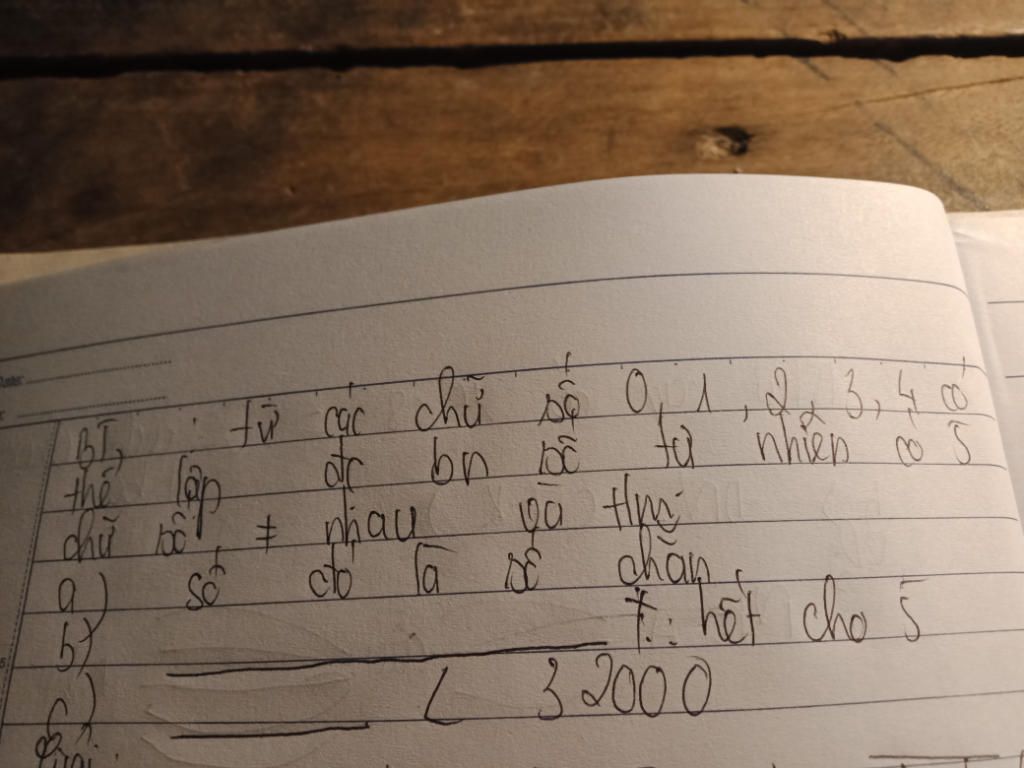 BT, từ các chữ số 0, 1, 2, 3, 4 có
thể lập đc bn số tự nhiên có 5
chữ số ≠ nhau và tm:
a) số đó là số chẵn
b) ______ ⋮ hết cho 5
c) ______ < 32000
Giải: